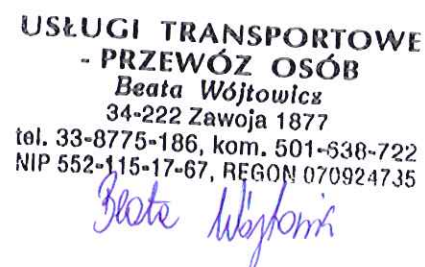 USŁUGI TRANSPORTOWE
- PRZEWÓZ OSÓB
Beata Wójtowicz
34-222 Zawoja 1877
tel. 33-8775-186, kom. 501-638-722
NIP 552-115-17-67, REGON 070924735
Beata Wójtowicz